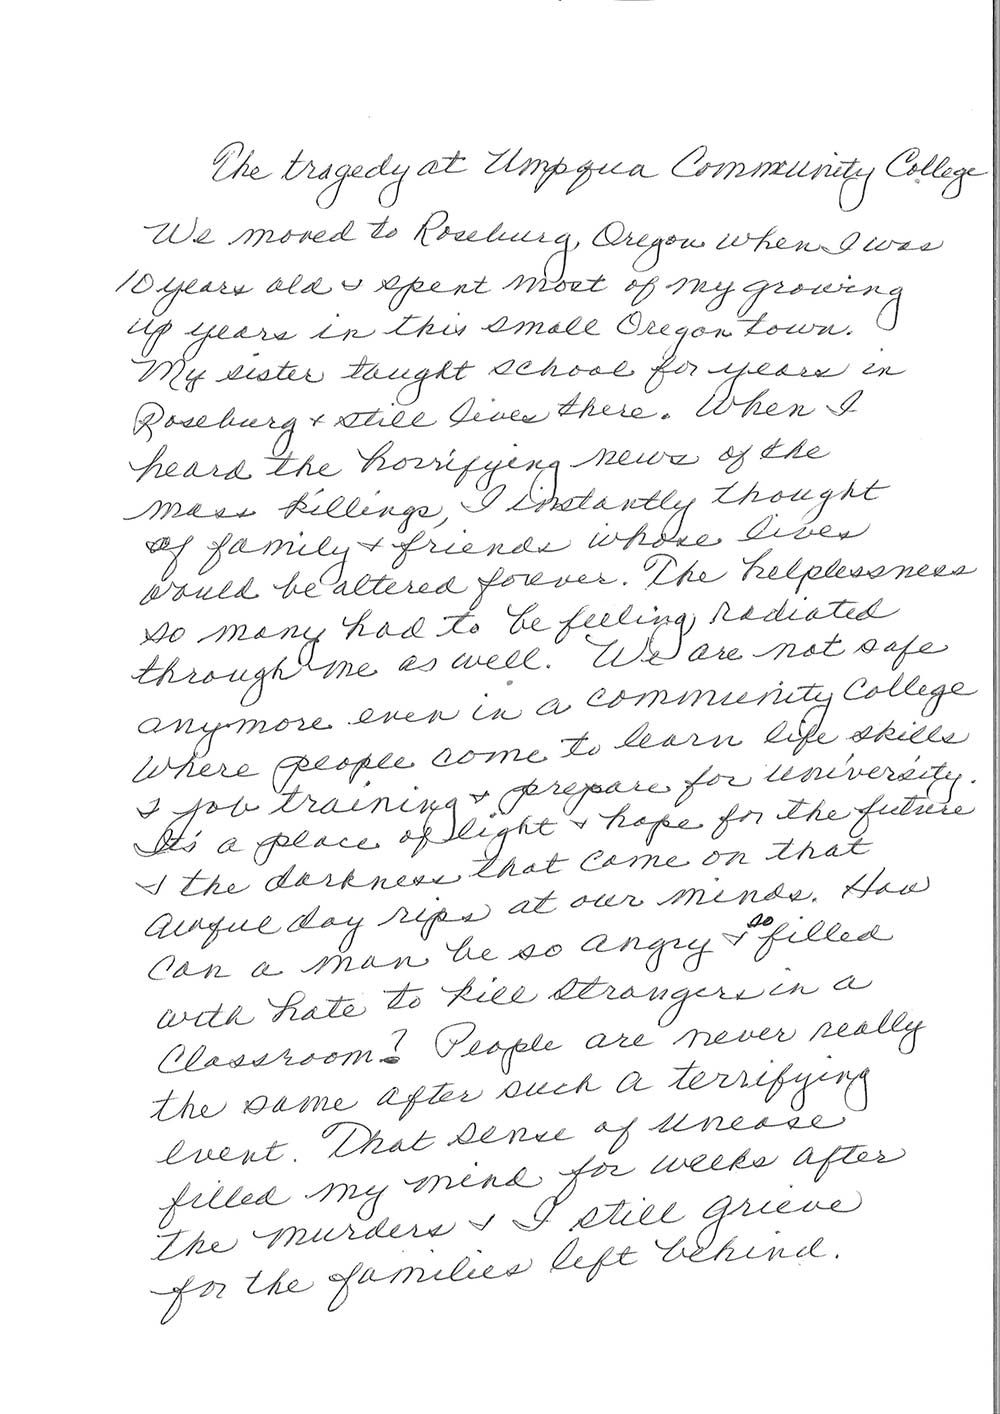 The tragedy at Umpqua Community College
We moved to Roseburg, Oregon when I was
10 years old & spent most of my growing
up years in this small Oregon town.
My sister taught school for years in
Roseburg & still lives there. When I
heard the horrifying news of the
mass killings, I instantly thought
of family & friends whose lives
would be altered forever. The helplessness
so many had to be feeling radiated
through me as well. We are not safe
anymore even in a community College
where people come to learn life skills
& job training & prepare for university.
It's a place of light & hope for the future
& the darkness that came on that
awful day rips at our minds. How
can a man be so angry & so filled
with hate to kill strangers in a
classroom? People are never really
the same after such a terrifying
event. That sense of unease
filled my mind for weeks after
the murders & I still grieve
for the families left behind.